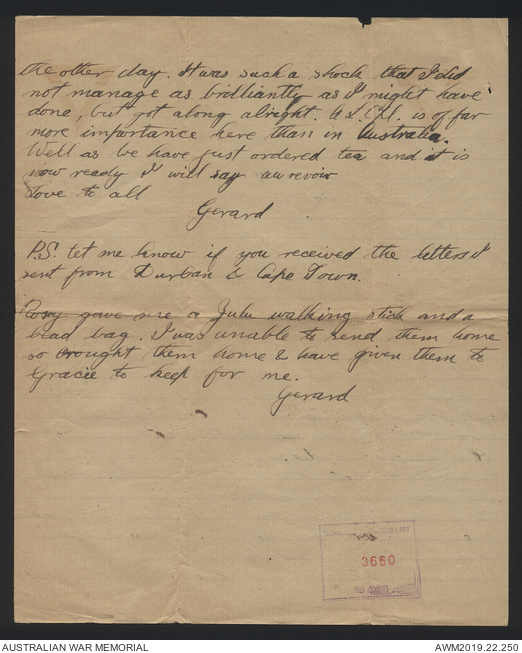 the other day. It was such a shock that I did
not manage as brilliantly as I might have
done, but got along alright. is of far
more importance here than in Australia.
Well as we have just ordered tea and it is
now ready I will say au revoir
Love to all
Gerard
P.S. Let me know if you received the letters I
sent from Durban & Cape Town.
Rosy gave me a Zulu walking stick and a
bead bag. I was unable to send them home
so brought them home & have given them to
Gracie to keep for me.
Gerard
3660
AUSTRALIAN WAR MEMORIAL
AWM2019.22.250